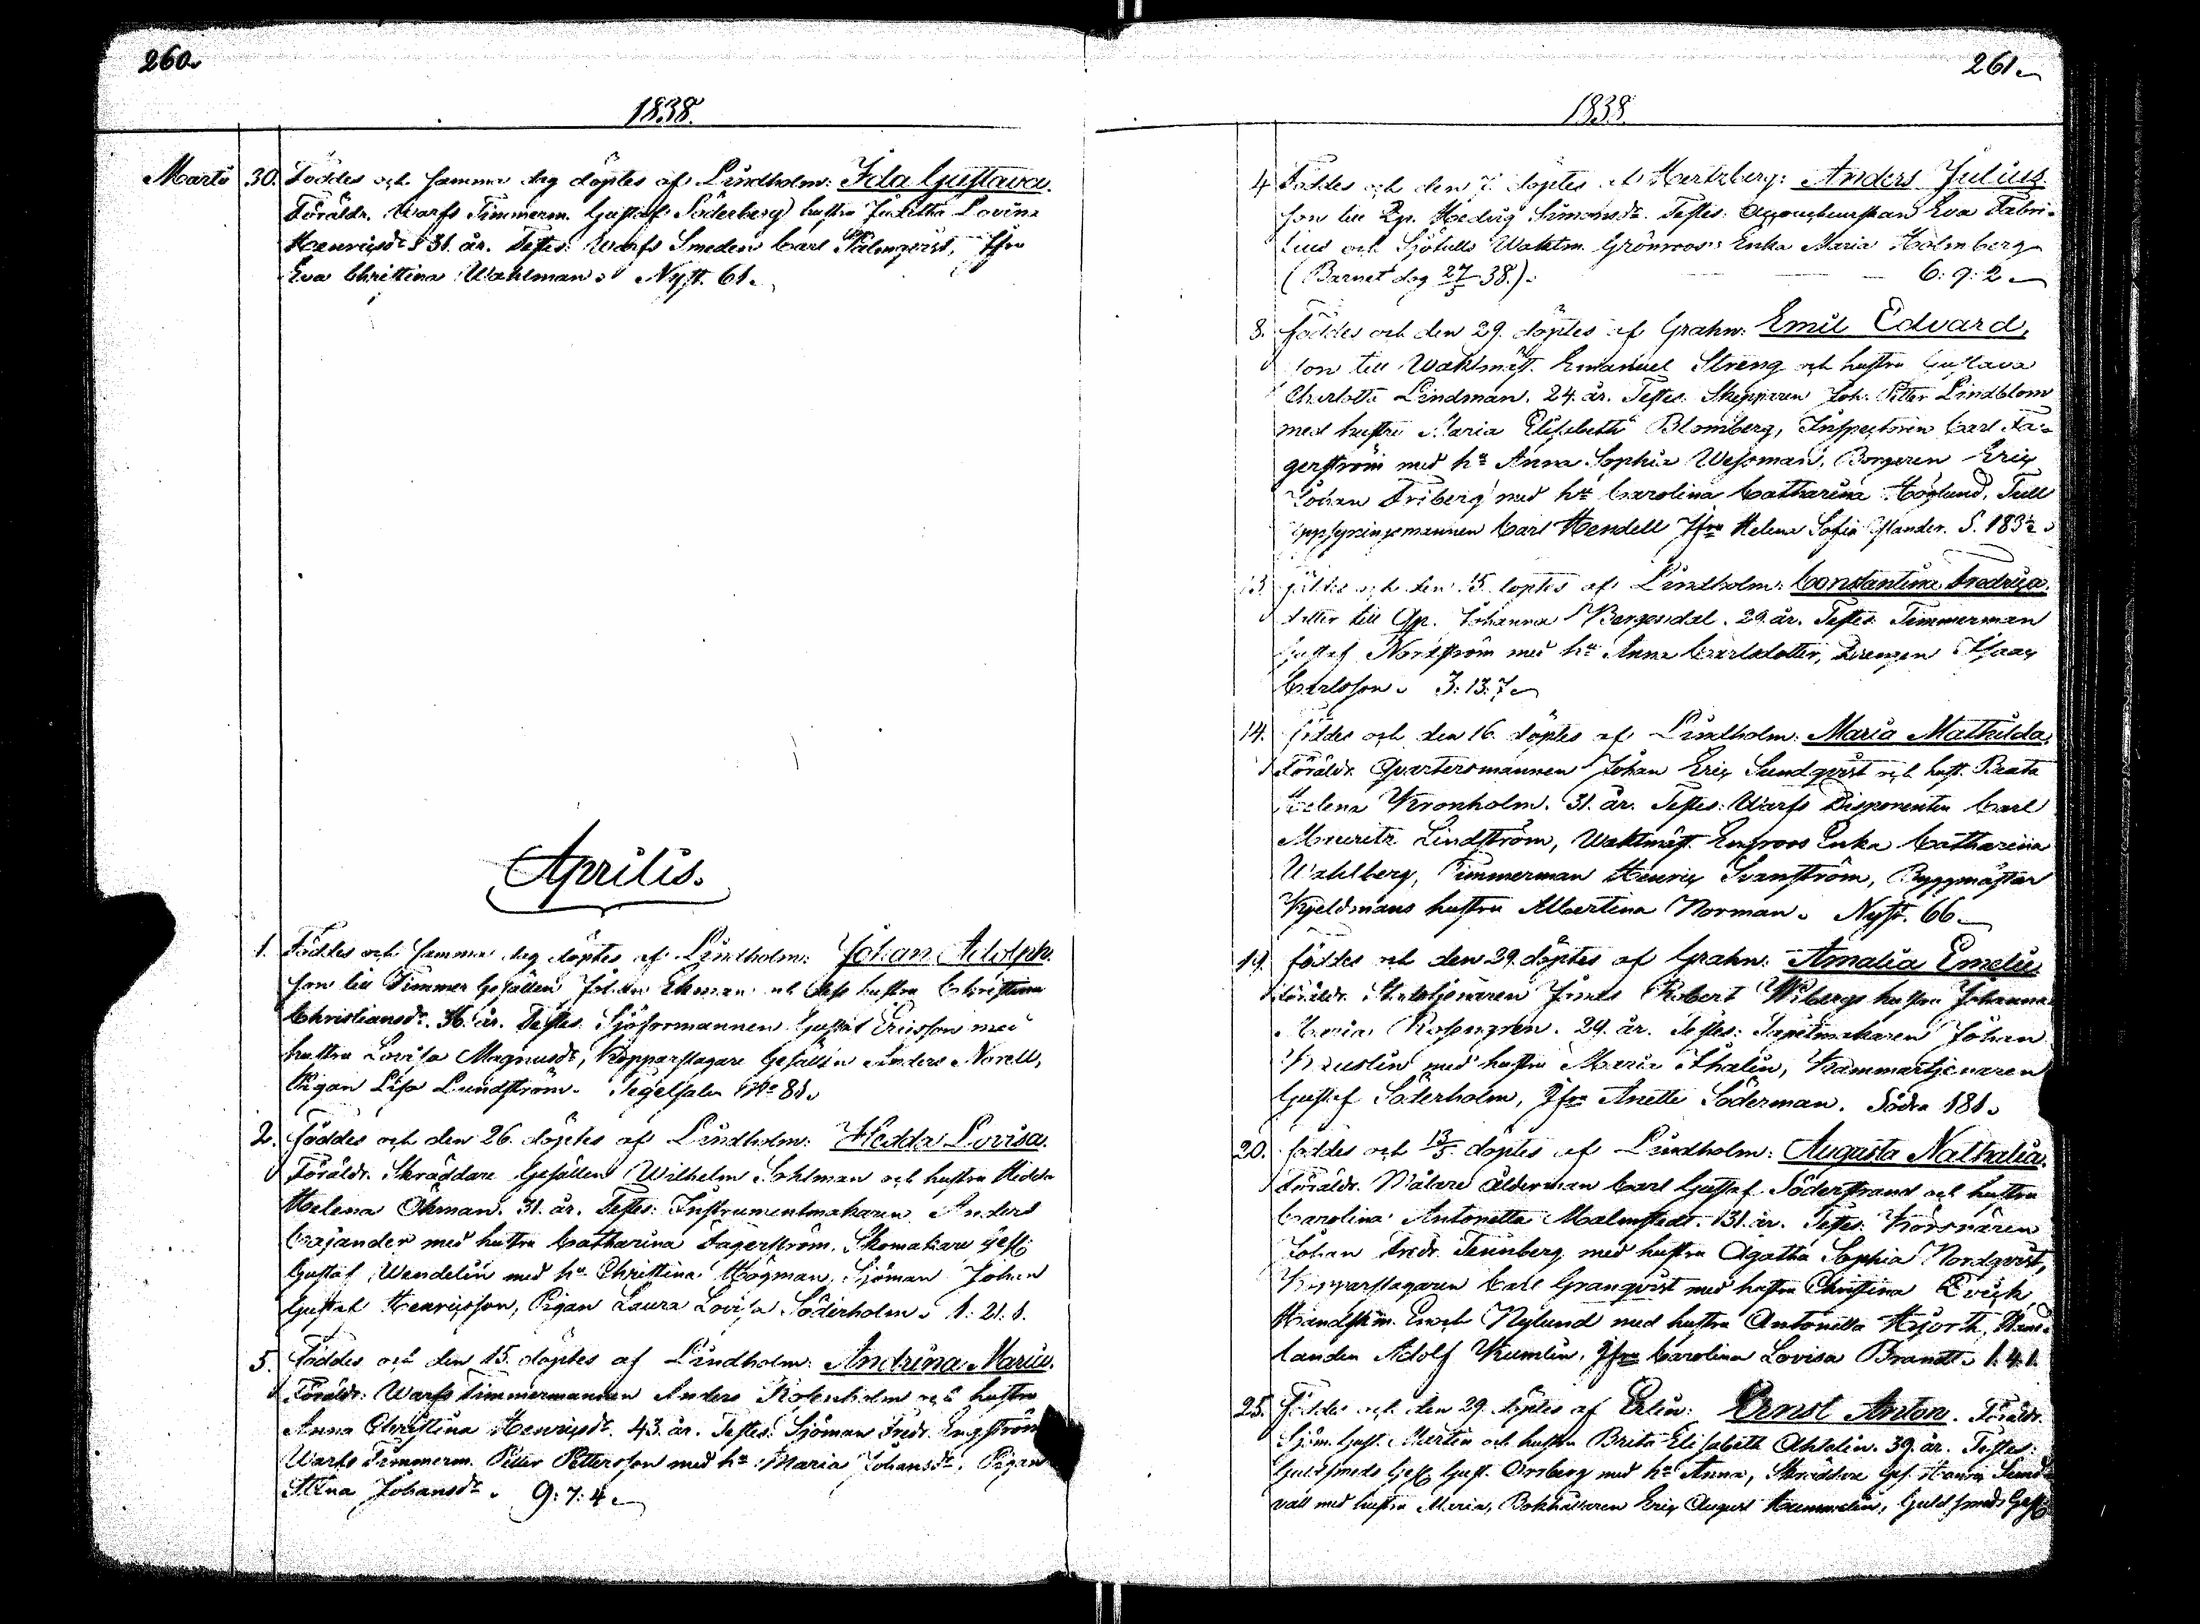 260.
1838.
Martii 30. Föddes och samma dag döptes af Lindholm: Ida Gustava.
Föräldr. Warfs Timmerm. Gustaf Söderberg hustru Lovisa
Henricsdr 31. år. Testes: Warfs Smeden Carl Palmqvist, Jfru
Eva Christina Wahlman. Nyst. 61.
Aprilis.
1. Föddes och samma dag döptes af Lindholm: Johan Adolph.
son till Timmer Gesällen Johan Ekman och dess hustru Christina
Christiansdr. 36. år. Testes: Sjöformannen Gustaf Ericsson med
hustru Lovisa Magnusdr, Kopparslagare Gesällen Anders Norell,
Pigan Lisa Lundström. Segelsalen No 81.
2. föddes och den 26. döptes af Lindholm: Hedda Lovisa.
Föräldr. Skräddare Gesällen Wilhelm Sohlman och hustru Hedda
Helena Öhman. 31. år. Testes: Instrumentmakaren Anders
Crajander med hustru Catharina Fagerström. Skomakare Gesll
Gustaf Wendelin med hu Christina Högman, Sjöman Johan
Gustaf Henricsson, Pigan Laura Lovisa Söderholm. 1: 21. 1.
5. Föddes och den 15. döptes af Lindholm: Andrina Maria.
Föräldr: Warfs timmermannen Anders Rosenholm och hustru
Anna Christina Henricsdr 43. år. Testes: Sjöman Fredr. Engström
Warfs Timmerm. Petter Pettersson med hu Maria Johansdr. Pigan
Stina Johansdr. 9: 7: 4.
261.
1838
4 Föddes och den 7. döptes af Hertzberg: Anders Julius
son till Qp. Hedvig Simonsdr. Testes: Accoucheurskan Eva Fabri-
cius och Sjötulls Waktm. Grönroos's Enka Maria Holmberg
(Barnet dog 27/5 38.). 6: 9: 2
8. föddes och den 29. döptes af Grahn: Emil Edvard,
son till Waktmäst. Emanuel Streng och hustru Gustava
Charlotta Lindman. 24. år. Testes. Skepparen Joh. Petter Lindblom
med hustru Maria Elisabeth Blomberg, Inspectoren Carl Fa-
gerström med hu Anna Sophia Wessman, Borgaren Eric
Johan Friberg med hu Carolina Catharina Höglund, Tull
uppsyningsmannen Carl Hendell Jfru Helena Sofia S. 183½.
13. föddes och den 15. döptes af Lindholm: Constantina Fredrica.
dotter till Qp. Johanna Bergendal. 29. år. Testes Timmerman
Gustaf Nordström med hu Anna Carlsdotter, Drengen Isaac
Carlsson. 3: 13: 7
14. föddes och den 16. döptes af Lindholm. Maria Mathilda.
Föräldr. Qvartersmannen Johan Eric Sundqvist och hust. Beata
Helena Kronholm. 31. år. Testes: Warfs Disponenten Carl
Mauritz Lindström, Waktmäst. Engroos Enka Catharina
Wahlberg, Timmerman Henric Svanström, Byggmästar
Kjeldmans hustru Albertina Norman. Nyst. 66.
19. föddes och den 29. döptes af Grahn: Amalia Emelie
Föräldr. Robert Wibergs hustru Johanna
Maria Rosengren. 24. år. Testes: Tapetmakaren Johan
med hustru Maria Thalin, Kammartjenaren
Gustaf Söderholm, Jfru Anette Söderman. Södra 181.
20. föddes och 13/5. döptes af Lindholm: Augusta Nathalia.
Föräldr. Målare ålderman Carl Gustaf Söderstrand och hustru
Carolina Antonetta Malmstedt. 31. år. Testes Körsnären
Johan Fredr. Tennberg med hustru Agatha Sophia Nordqvist,
Kopparslagaren Carl Granqvist med hustru Christina
Handelsm. Enoch Nylund med hustru Antonetta Hjorth, Hand-
landen Adolf Kumlin. Jfru Carolina Lovisa Brandt. 1: 4: 1.
25. Föddes och den 29. döptes af Elin: Ernst Anton. Föräldr.
Sjöm. Gust. Martin och hustru Brita Elisabeth Ahtolin. 39. år. Testes:
Guldsmeds Gesll Gust. Orsberg med hu Anna, Skräddare Ges. Henric Sund-
vall med hustru Maria, Bokhållaren Eric August Hammelin, Guldsmeds Gesll